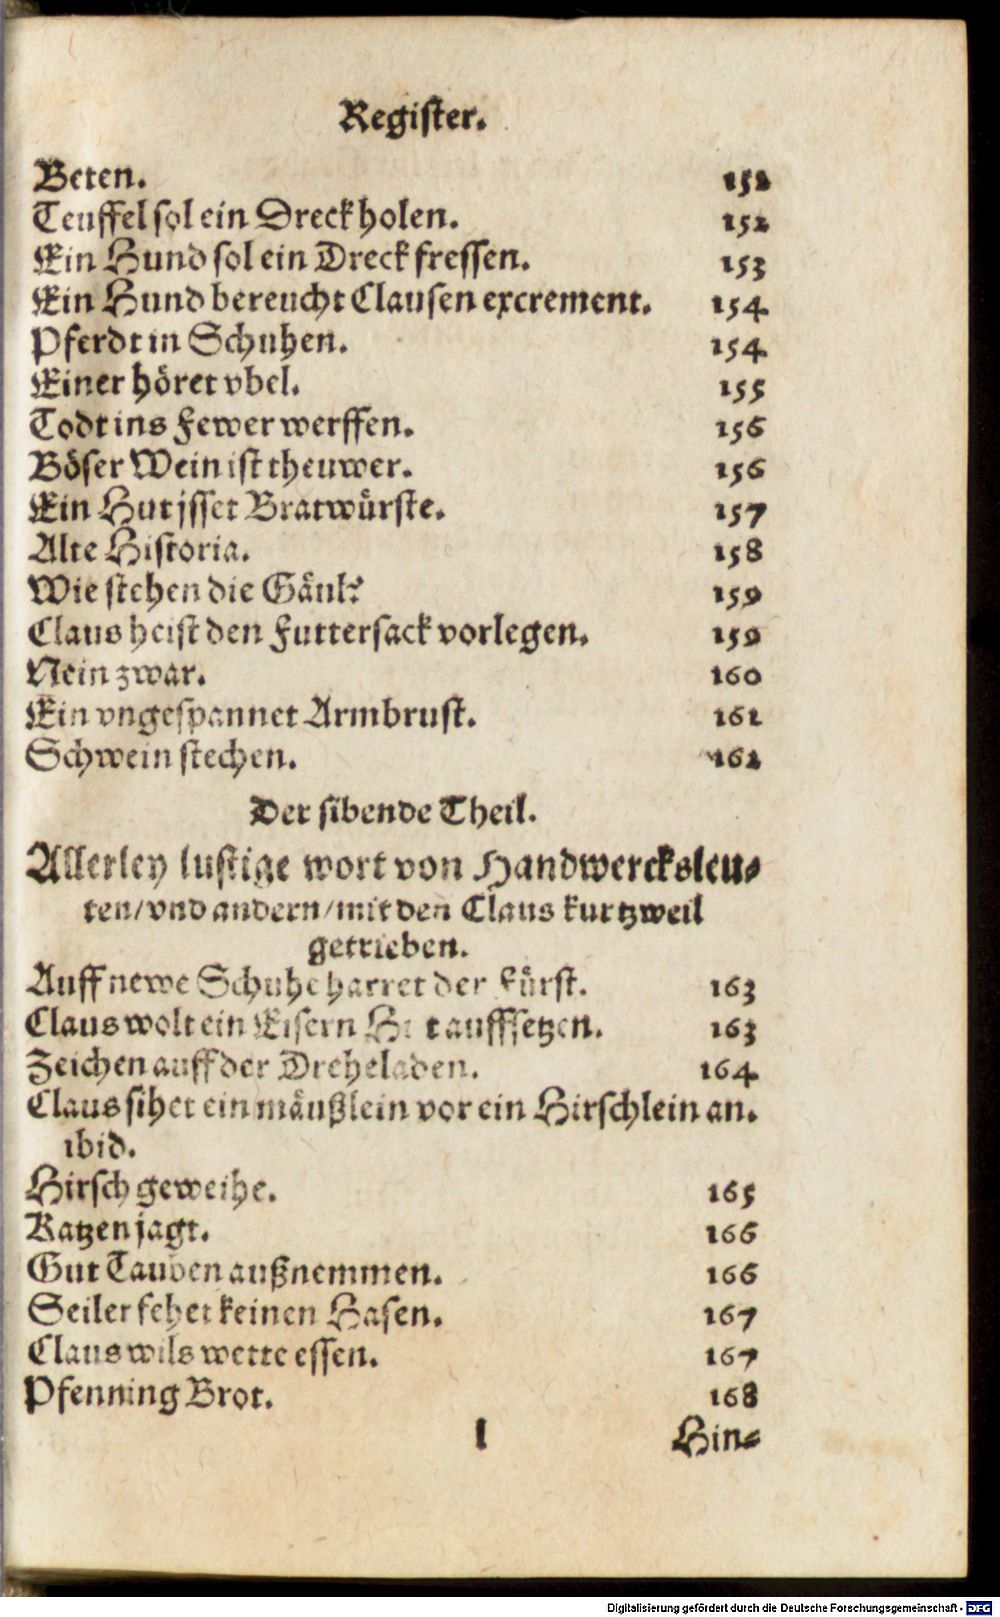 Register.
Beten. 152
Teuffel sol ein Dreck holen. 152
Ein Hund sol ein Dreck fressen. 153
Ein Hund bereucht Clausen excrement. 154
Pferdt in Schuhen. 154
Einer höret vbel. 155
Todt ins Fewer werffen. 156
Böser Wein ist theuwer. 156
Ein Hut jsset Bratwürste. 157
Alte Historia. 158
Wie stehen die Gäul? 159
Claus heist den Futtersack vorlegen. 159
Nein zwar. 160
Ein vngespannet Armbrust. 161
Schwein stechen. 162
Der sibende Theil.
Allerley lustige wort von Handwercksleu-
ten/ vnd andern/ mit den Claus kurtzweil
getrieben.
Auff newe Schuhe harret der Fürst. 163
Claus wolt ein Eisern Hut auffsetzen. 163
Zeichen auff der Dreheladen. 164
Claus sihet ein mäußlein vor ein Hirschlein an.
ibid.
Hirsch geweihe. 165
Katzen jagt. 166
Gut Tauben außnemmen. 166
Seiler fehet keinen Hasen. 167
Claus wils wette essen. 167
Pfenning Brot. 168
l Hin-
Digitalisierung gefördert durch die Deutsche Forschungsgemeinschaft - DFG